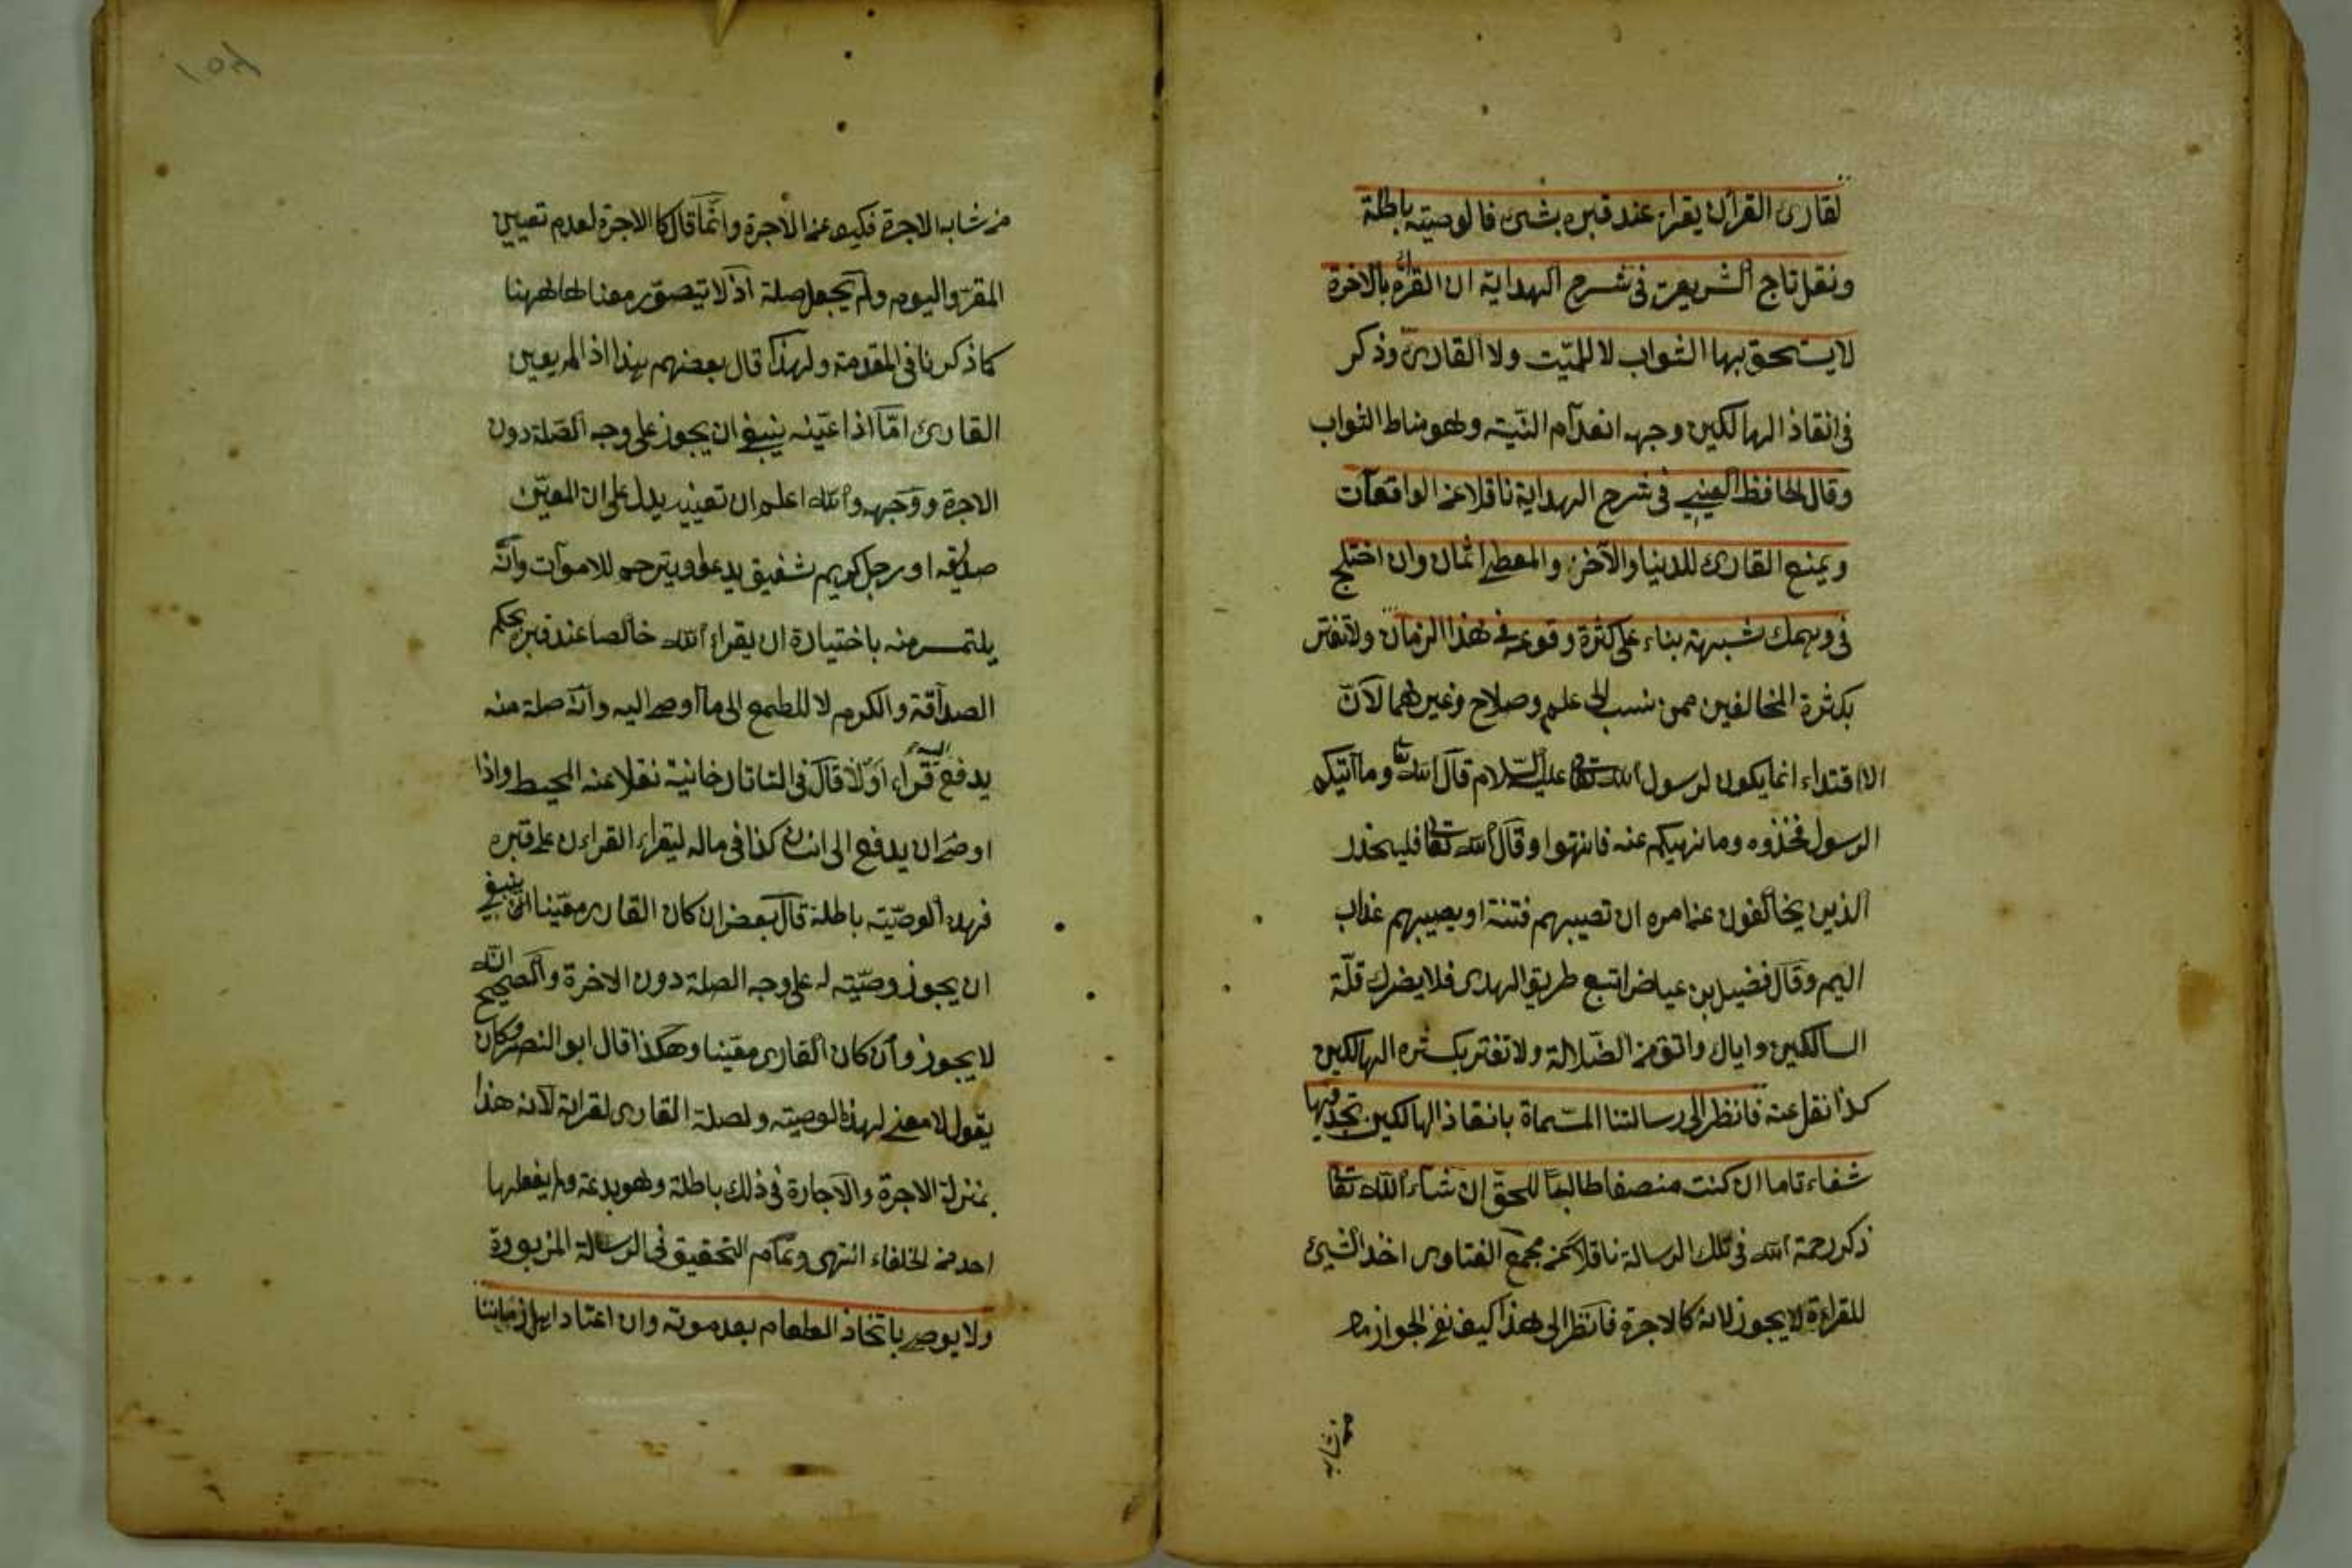 لقارئ القرأن يقراء عند قبره بشئ فالوصيته باطلة
ونقل تاج الشريعة فى شرح الهداية ان القراءة بالاخرة
لايستحق بها الثواب لا للميّت ولا القارئ وذكر
فى انقاذ الهالكين وجهه انعدام النّيته وهو مناط الثواب
وقال الحافظ العينى فى شرح الهداية ناقلا عن الواقعات
ويمنع القارئ للدنيا والآخذ والمعطى اثمان وان اختلج
فى وهمك شبهة بناء على كثرة وقوعه فى هذا الزمان ولاتغتر
بكثرة المخالفين ممن نسب الى علم وصلاح وغيرهما لانّ
الاقتداء انما يكون لرسول الله تعالى عليه السلام قال الله تعا وما آتيكم
الرسول فخذوه وما نهيكم عنه فانتهوا وقال الله تعالى فليحذر
الذين يخالفون عن امره ان تصيبهم فتنة او يصيبهم عذاب
اليم وقال فضيل بن عياض اتبع طريق الهدى فلا يضرك قلّة
السالكين واياك واتق من الضّلالة ولا تغتر بكثره الهالكين
كذا نقل عنه فانظر الى رسالتنا المسّماة بانقاذ الهالكين تجد فيها
شفاء تاما ان كنت منصفا طالبًا للحقّ ان شاء الله تعالى
ذكر رحمة الله فى تلك الرسالة ناقلا عن مجمع الفتاوى اخذ الشئ
للقراءة لايجوز لانه كالاجرة فانظر الى هذا كيف نفى الجواز مما
من شابه
١٥٨
من شابه الاجرة فكيف عن الاجرة وانّما قال كالاجرة لعدم تعيين
المقرّ واليوم ولم يجعل صلة اذ لا يتصوّر معناها ههنا
كما ذكرنا فى المقدمة ولهذا قال بعضهم هذا اذا لم يعين
القارئ امّا اذا عيّنه ينبغى ان يجوز على وجه الصّلة دون
الاجرة ووجهه والله اعلم ان تعيينه يدل على ان المعيّن
صديقه او رجل كريم شفيق يدعو ويترحم للاموات وانّه
يلتمس منه باختياره ان يقراء الله خالصا عند قبره بحكم
الصداقة والكرم لا للطمع الى ما اوصى اليه وانّه صلة منه
يدفع اليه قراء اوّلا قال فى التاتارخانية نقلا عنه المحيط واذا
اوصى ان يدفع الى انسان كذا فى ماله ليقراء القراءن على قبره
فهذه الوصيّته باطلة قال بعض ان كان القارى معيّنا ينبغى
ان يجوز وصيّته له على وجه الصلة دون الاخرة والصحيح انّه
لايجوز وان كان القارى معيّنا وهكذا قال ابو النصر وكان
يقول لا معنى لهذه الوصيته ولصلة القارى لقرائة لانه هذا
بمنزلة الاجرة والاجارة فى ذلك باطلة وهو بدعة ولم يفعلها
احد من الخلفاء انتهى وتمام التحقيق فى الرسالة المزبورة
ولايوصى باتخاذ الطعام بعد موته وان اعتاد اهل زماننا